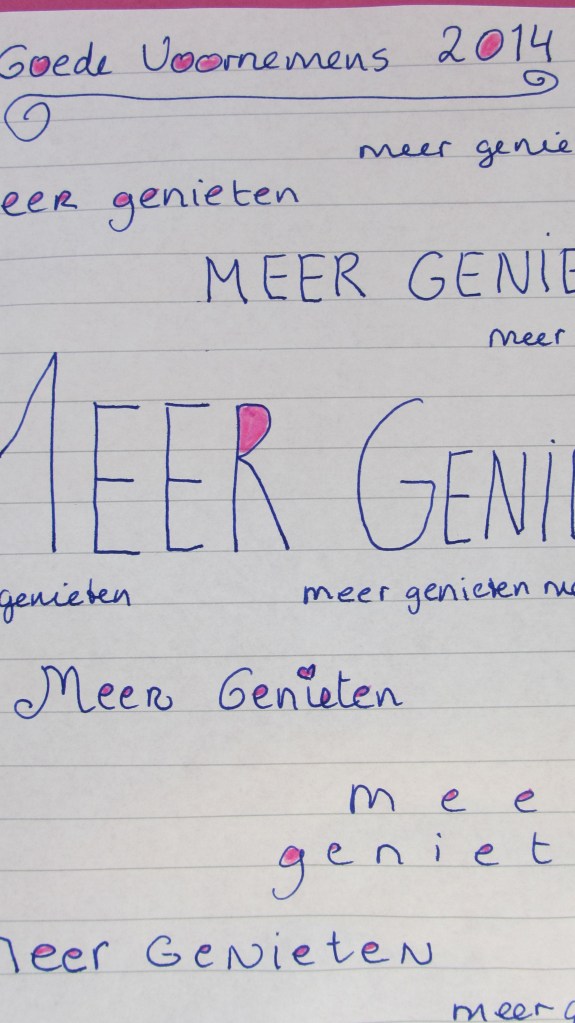 Goede Voornemens 2014
meer genie
eer genieten
MEER GENIE
meer
MEER GENI
genieten meer genieten me
Meer Genieten
m e e
g e n i e t
Meer GeNieteN
meer g